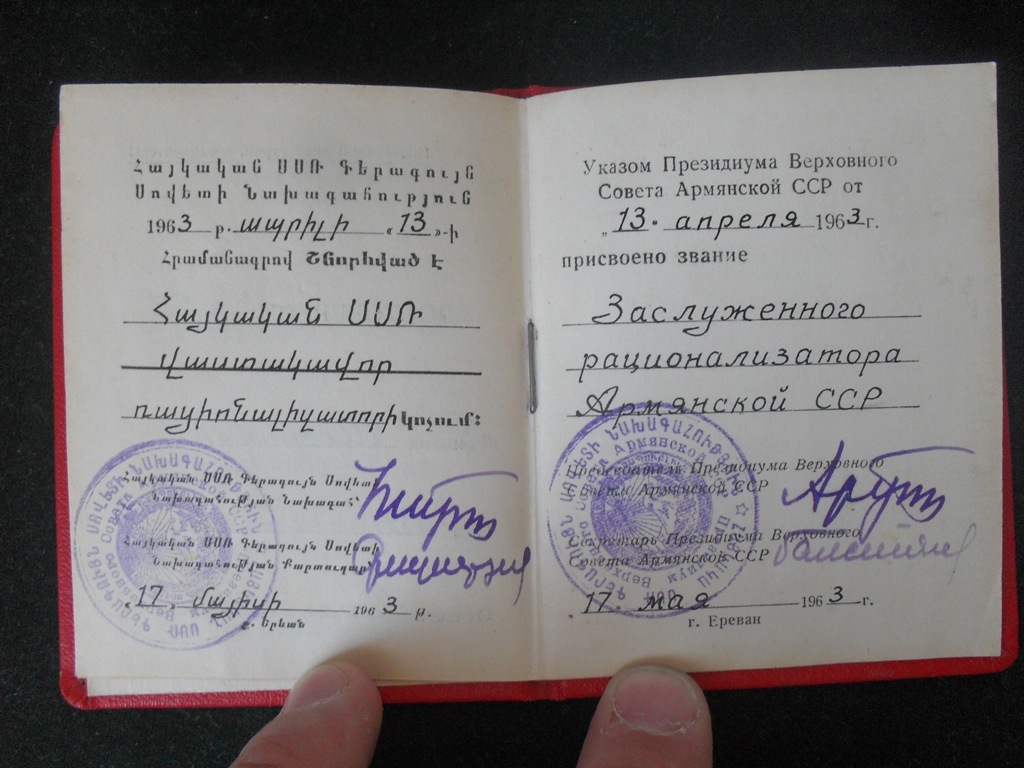 Հայկական ՍՍՌ Գերագույն
Սովետի Նախագահություն
1963 թ. ապրիլի «13»-ի
Հրամանագրով Շնորհված է
Հայկական ՍՍՌ
վաստակավոր
ռացիոնալիզատորի կոչում։
Հայկական ՍՍՌ Գերագույն Սովետի
Նախագահության Նախագահ՝
Հայկական ՍՍՌ Գերագույն Սովետի
Նախագահության Քարտուղար՝
„17„ մայիսի 1963 թ.
ք. Երևան
Указом Президиума Верховного
Совета Армянской ССР от
„13" апреля 1963 г.
присвоено звание
Заслуженного
рационализатора
Армянской ССР
Председатель Президиума Верховного
Совета Армянской ССР
Секретарь Президиума Верховного
Совета Армянской ССР
„17" мая 1963 г.
г. Ереван